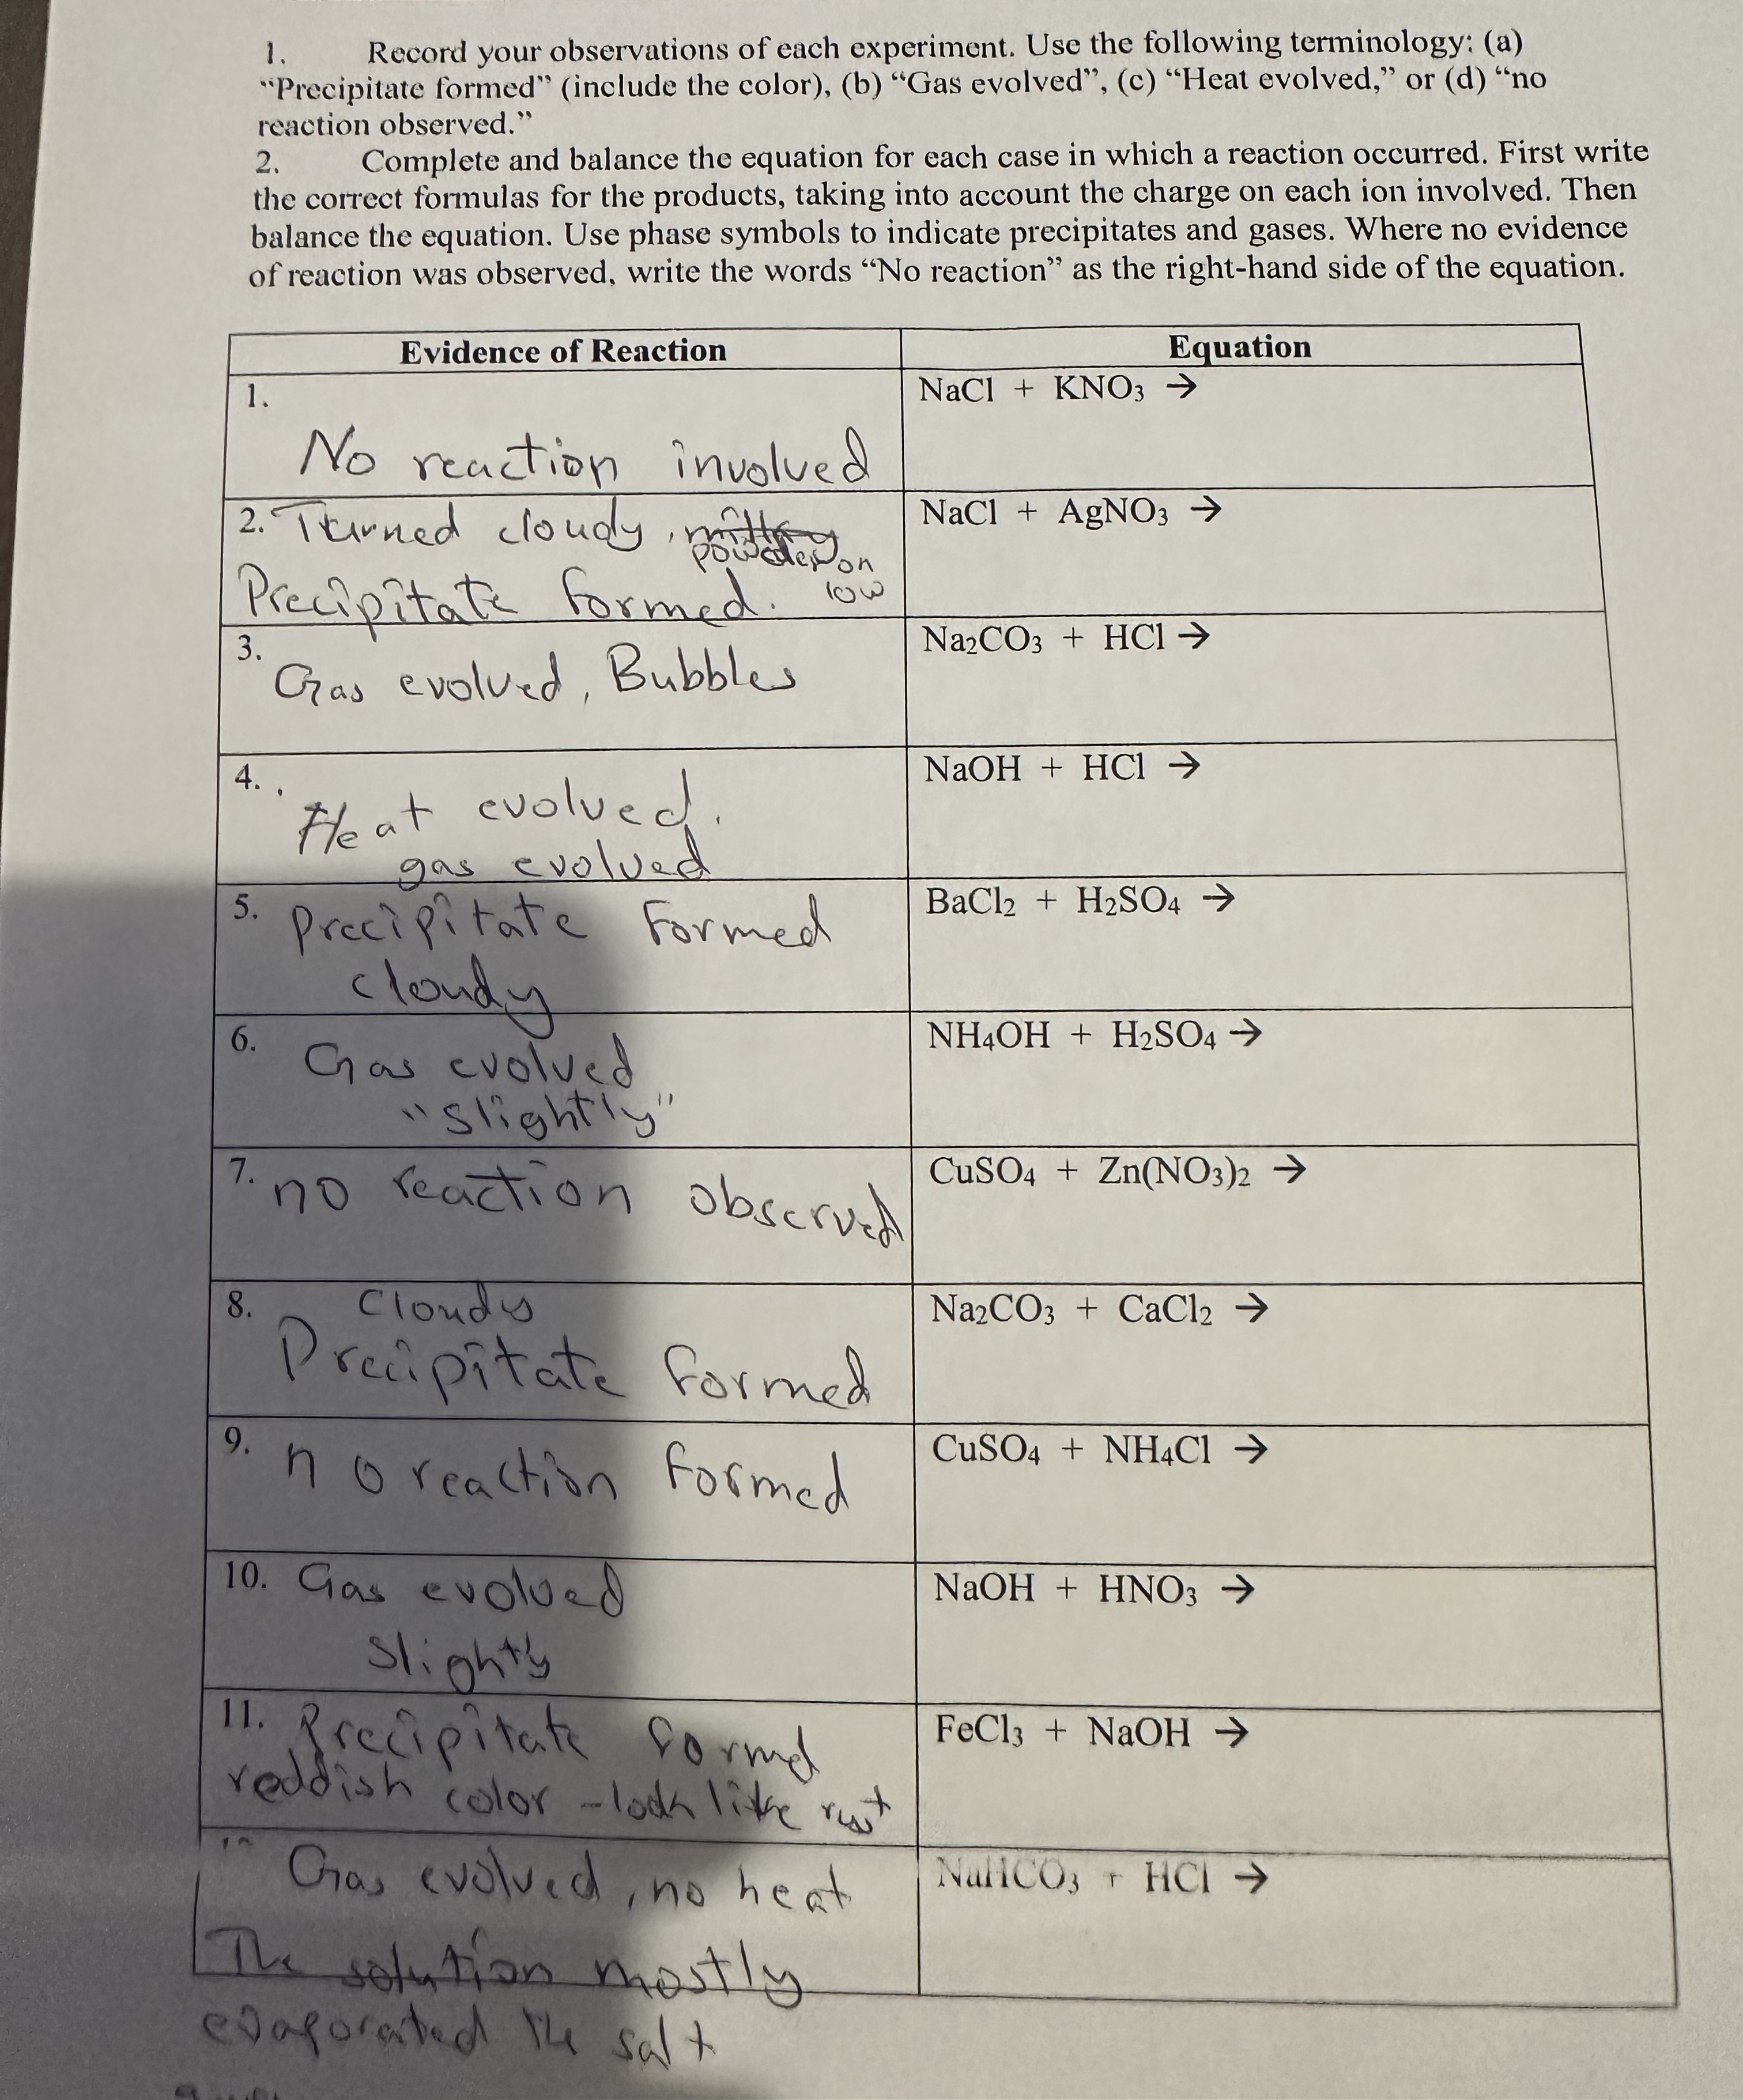 1. Record your observations of each experiment. Use the following terminology: (a)
“Precipitate formed” (include the color), (b) “Gas evolved”, (c) “Heat evolved,” or (d) “no
reaction observed.”
2. Complete and balance the equation for each case in which a reaction occurred. First write
the correct formulas for the products, taking into account the charge on each ion involved. Then
balance the equation. Use phase symbols to indicate precipitates and gases. Where no evidence
of reaction was observed, write the words “No reaction” as the right-hand side of the equation.
Evidence of Reaction
Equation
1.
No reaction involved
NaCl + KNO₃ →
2. Turned cloudy,
powder on
low
Precipitate formed.
NaCl + AgNO₃ →
3.
Gas evolved, Bubbles
Na₂CO₃ + HCl →
4.
Heat evolved.
gas evolved
NaOH + HCl →
5. Precipitate formed
cloudy
BaCl₂ + H₂SO₄ →
6.
Gas evolved
"slightly"
NH₄OH + H₂SO₄ →
7. no reaction observed
CuSO₄ + Zn(NO₃)₂ →
8. Cloudy
Precipitate formed
Na₂CO₃ + CaCl₂ →
9. no reaction formed
CuSO₄ + NH₄Cl →
10. Gas evolved
slightly
NaOH + HNO₃ →
11. Precipitate formed
reddish color - look like rust
FeCl₃ + NaOH →
Gas evolved, no heat
The solution mostly
evaporated the salt
NaHCO₃ + HCl →